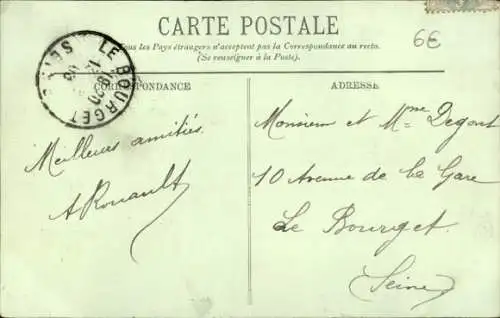 CARTE POSTALE
Tous les Pays étrangers n'acceptent pas la Correspondance au recto.
(Se renseigner à la Poste).
6€
LE BOURGET
CORRESPONDANCE
ADRESSE
Meilleures amitiés.
A Rouault
Monsieur et Mme Degont
10 Avenue de la Gare
Le Bourget
Seine